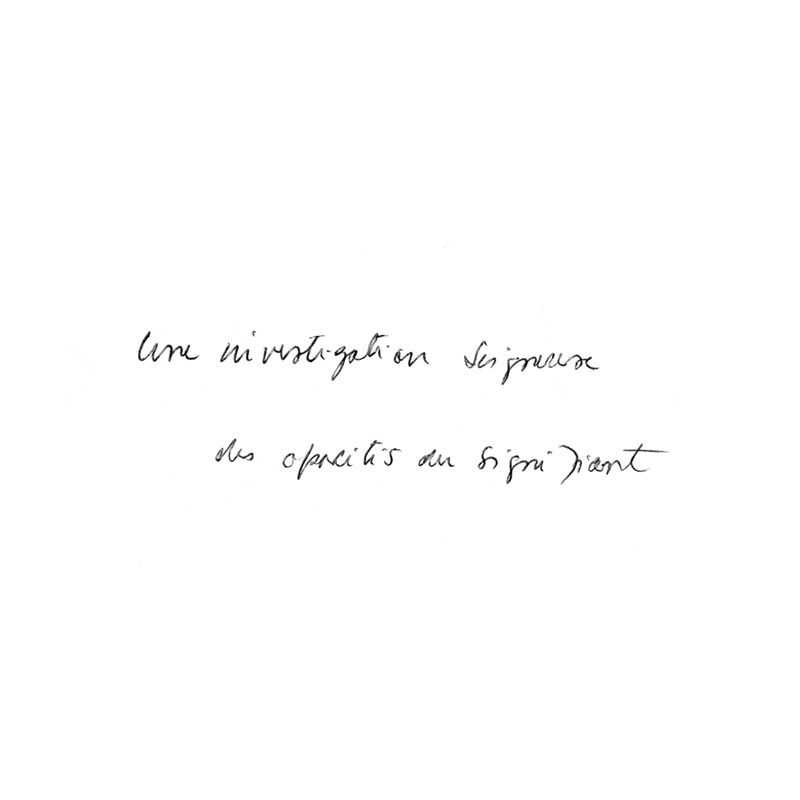 Une investigation soigneuse
des opacités du signifiant